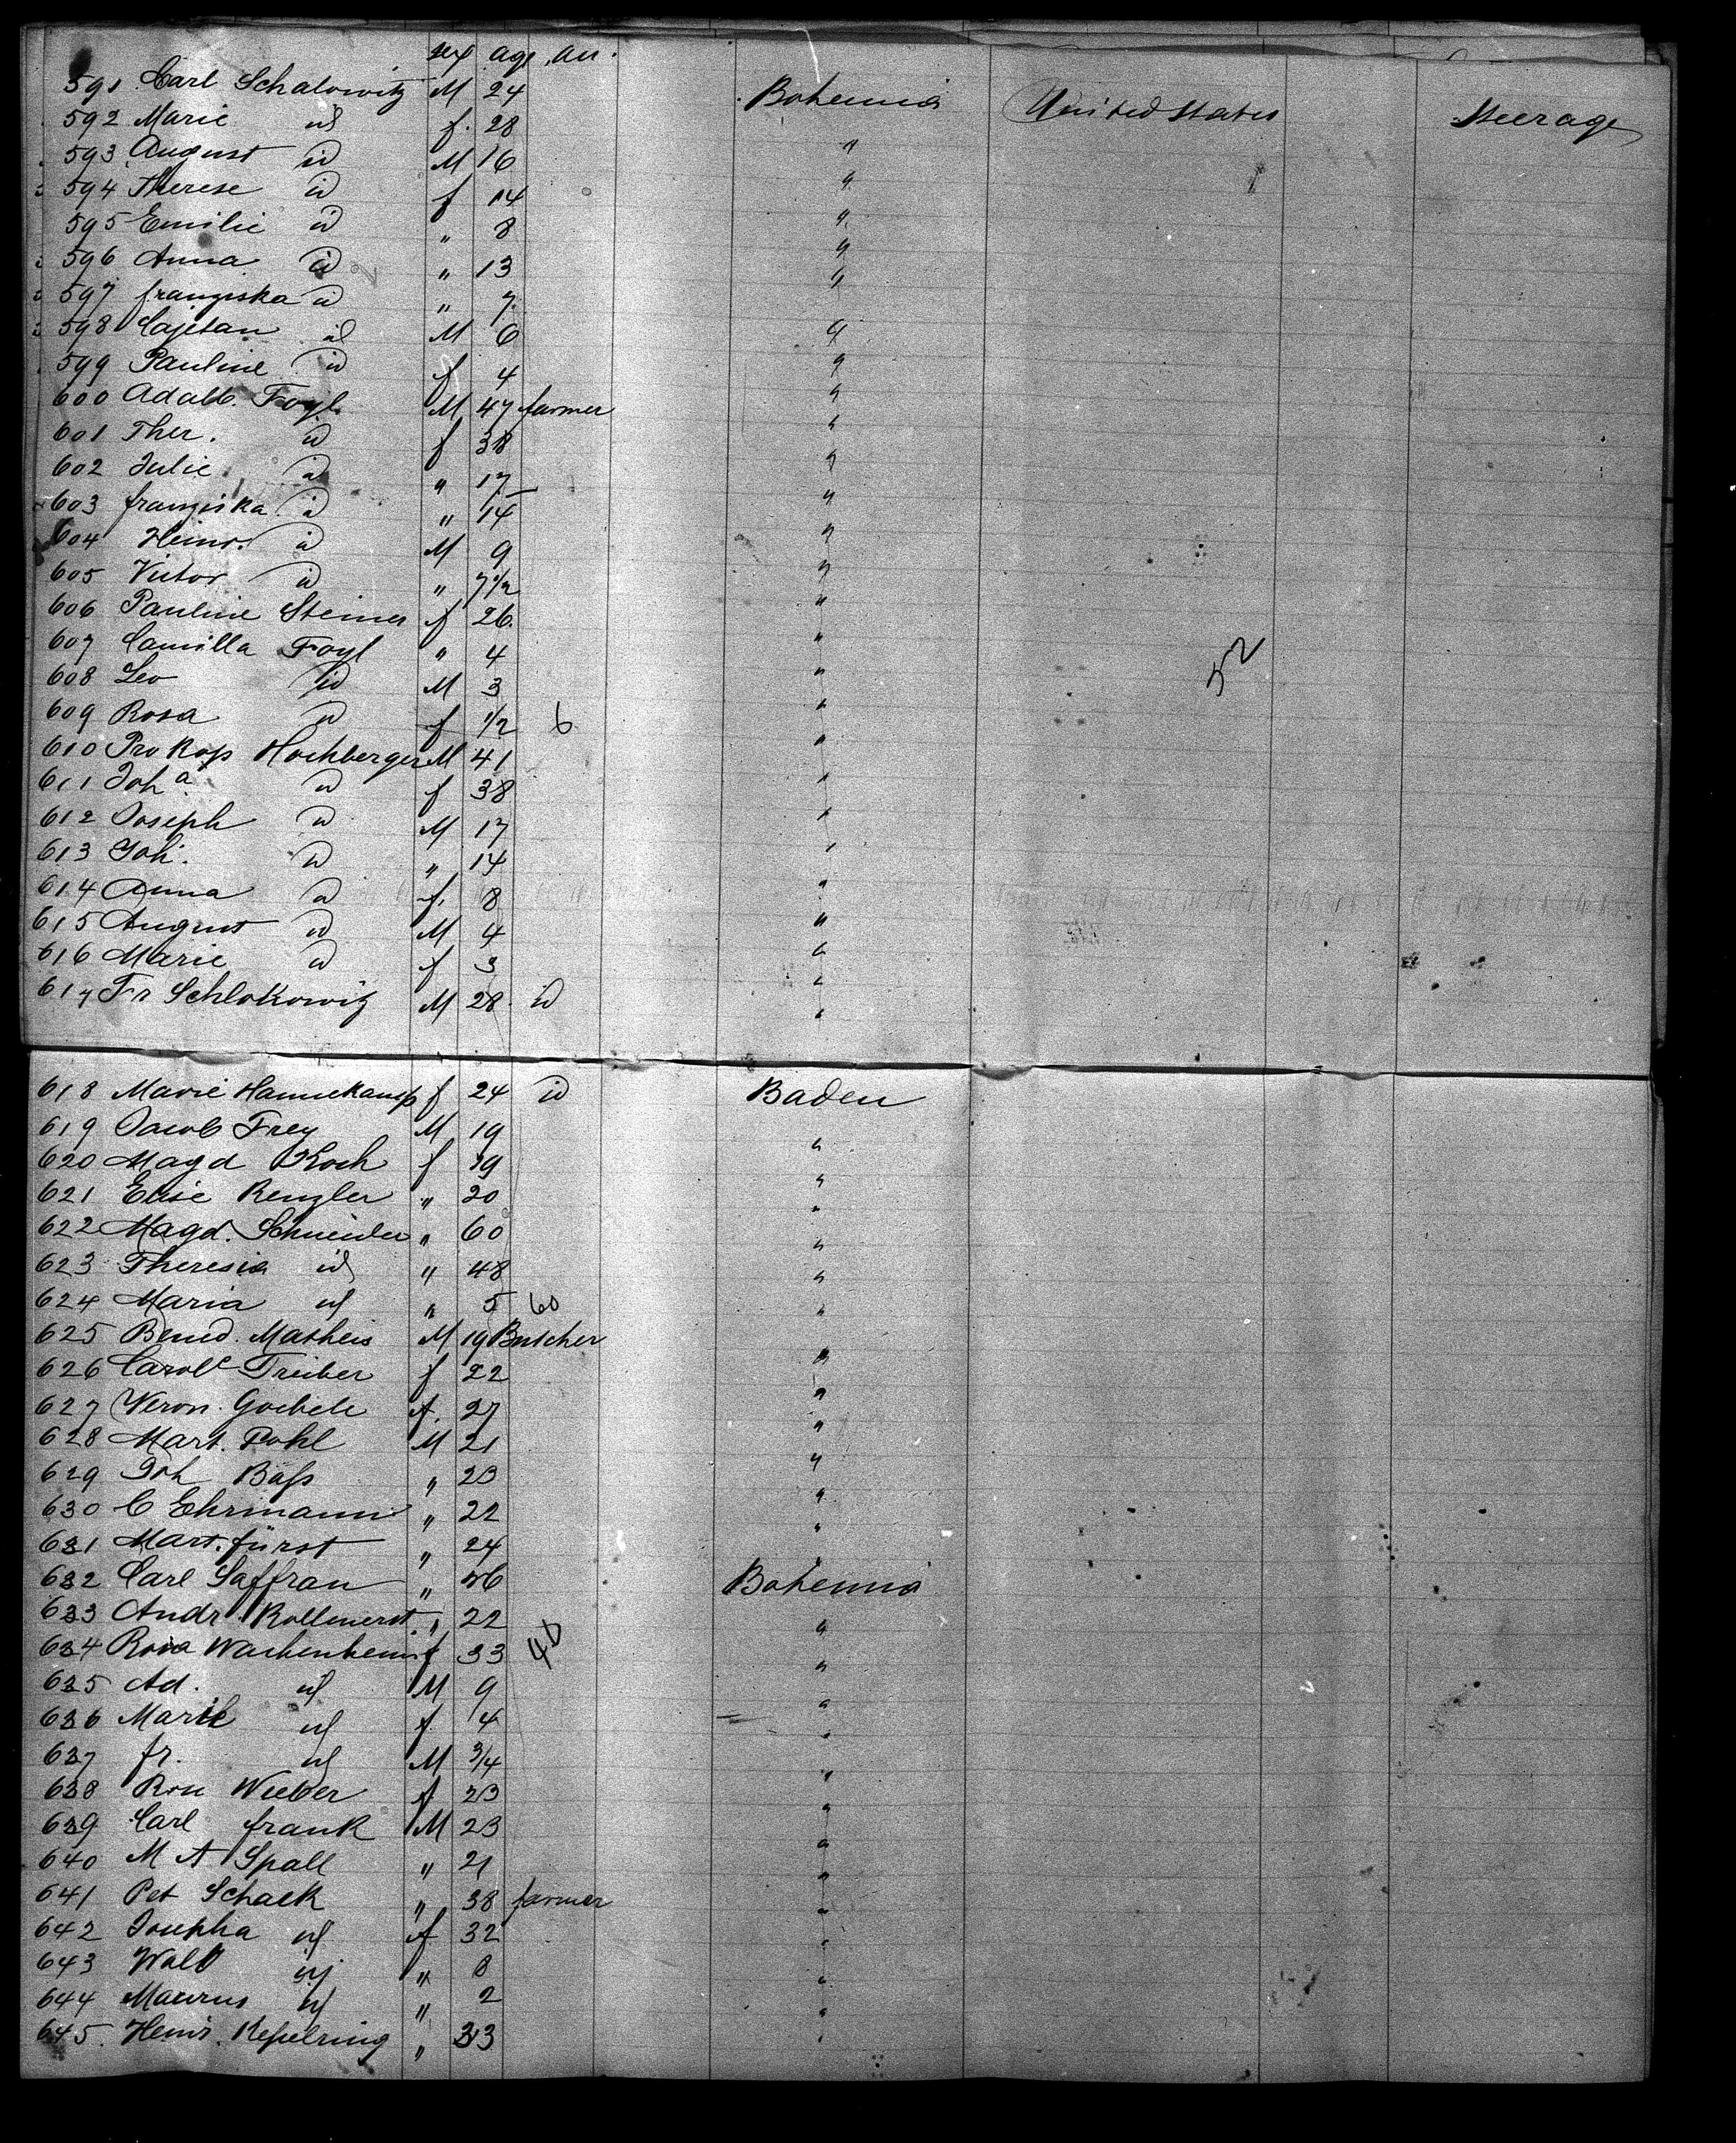 sex age
591 Carl Schalowitz M 24 Bohemia United States Steerage
592 Marie id f. 28 "
593 August id M 16 "
594 Therese id f 14 "
595 Emilie id " 8 "
596 Anna id " 13 "
597 franziska id " 7 "
598 Cajetan id M 6 "
599 Pauline id f 4 "
600 Adalb. Fogl M 47 farmer "
601 Ther. id f 38 "
602 Julie id " 17 "
603 franziska id " 14 "
604 Heinr. id M 9 "
605 Victor id " 7 1/2 "
606 Pauline Steiner f 26. "
607 Camilla Fogl " 4 " 52
608 Leo id M 3 "
609 Rosa id f 1/2 6 "
610 Prokop Hochberger M 41 "
611 Joha id f 38 "
612 Joseph id M 17 "
613 Joh. id " 14 "
614 Anna id f. 8 "
615 August id M 4 "
616 Marie id f 3 "
617 Fr Schlokowitz M 28 id "
618 Marie Hannekamp f 24 id Baden
619 Jacob Frey M 19 "
620 Magd Koch f 19 "
621 Elise Renzler " 20 "
622 Magd. Schneider " 60 "
623 Theresia id " 48 "
624 Maria id " 5 60 "
625 Bened. Matheis M 19 Butcher "
626 Carole Treiber f 22 "
627 Veron. f. 27 "
628 Mart. Pohl M 21 "
629 Joh Bäfs " 23 "
630 C Ehrmann " 22 "
631 Mart. fürst " 24 "
632 Carl Saffran " Bohemia
633 Andr. " 22 "
634 Rosa Wachenheim f 33 "
635 Ad. id M 9 "
636 Marie id f 4 "
637 fr. id M 3/4 "
638 Wieber f 23 "
639 Carl frank M 23 "
640 M A Spall " 21 "
641 Pet Schack " 38 farmer "
642 Josepha id f 32 "
643 id " 8 "
644 id " 2 "
645. Heinr. " 33 "